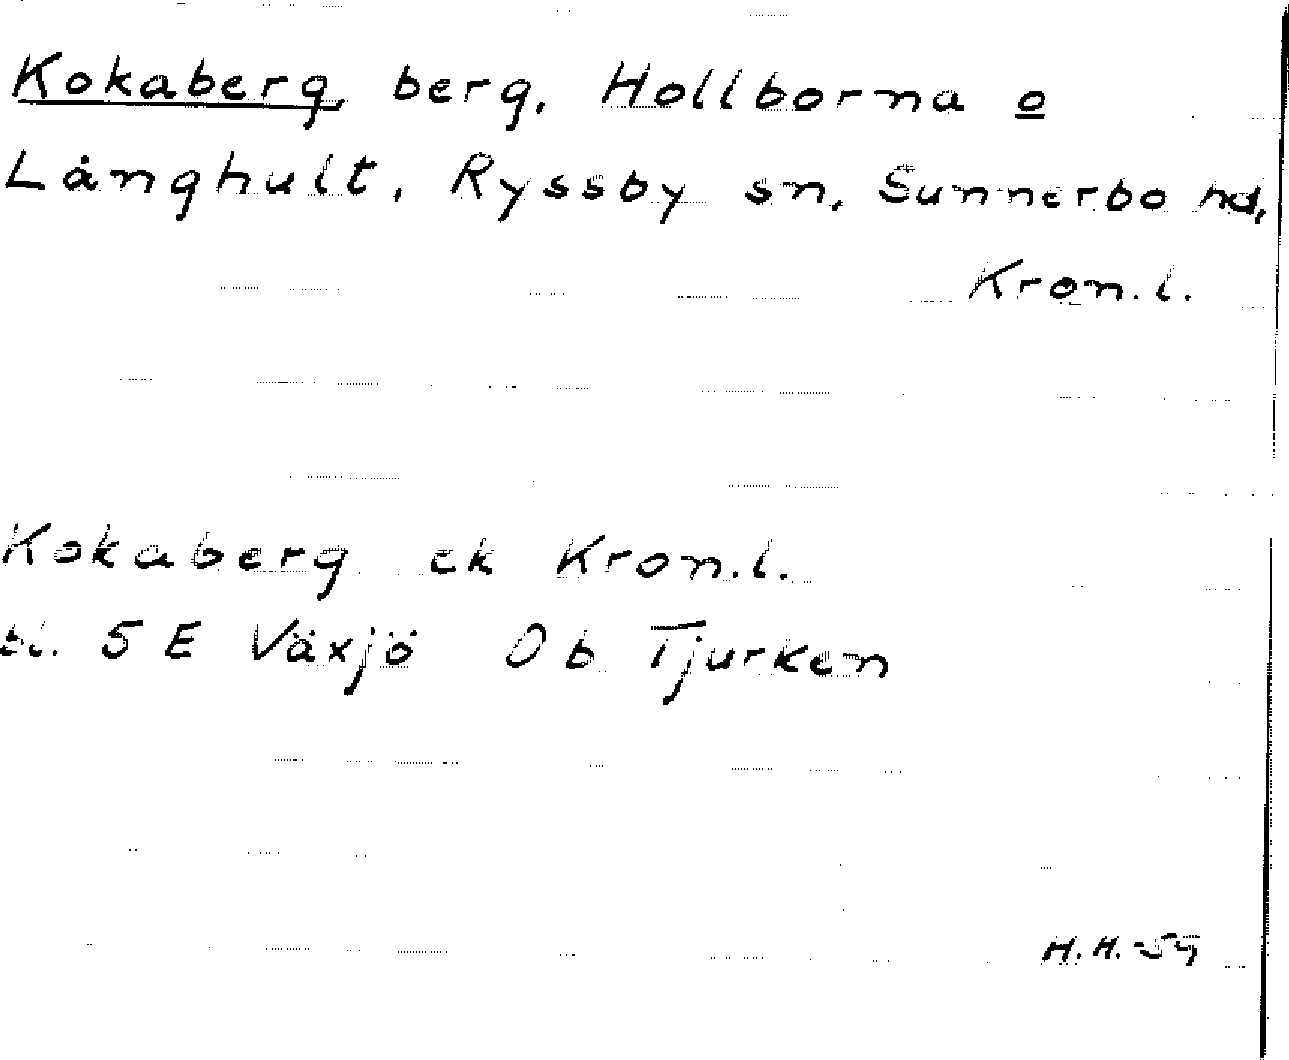 Kokaberg, berg, Hollborna o
Långhult, Ryssby sn, Sunnerbo hd,
Kron.l.
Kokaberg ek Kron.l.
bl. 5 E Växjö 0b Tjurken
H.H.-59